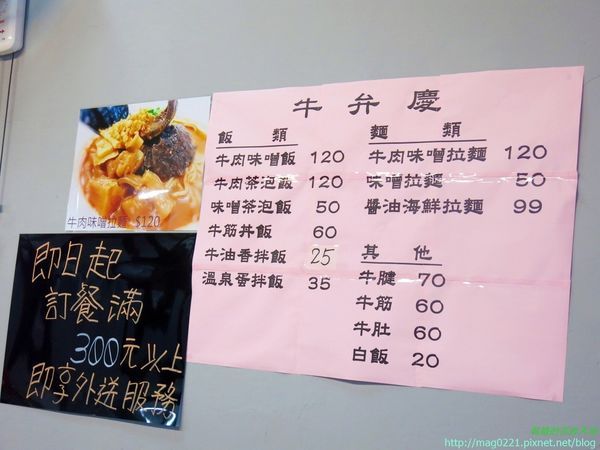 牛弁慶
飯類
牛肉味噌飯 120
牛肉茶泡飯 120
味噌茶泡飯 50
牛筋丼飯 60
牛油香拌飯 25
溫泉蛋拌飯 35
麵類
牛肉味噌拉麵 120
味噌拉麵 50
醬油海鮮拉麵 99
其他
牛腱 70
牛筋 60
牛肚 60
白飯 20
牛肉味噌拉麵 $120
即日起
訂餐滿
300元以上
即享外送服務
http://mag0221.pixnet.net/blog